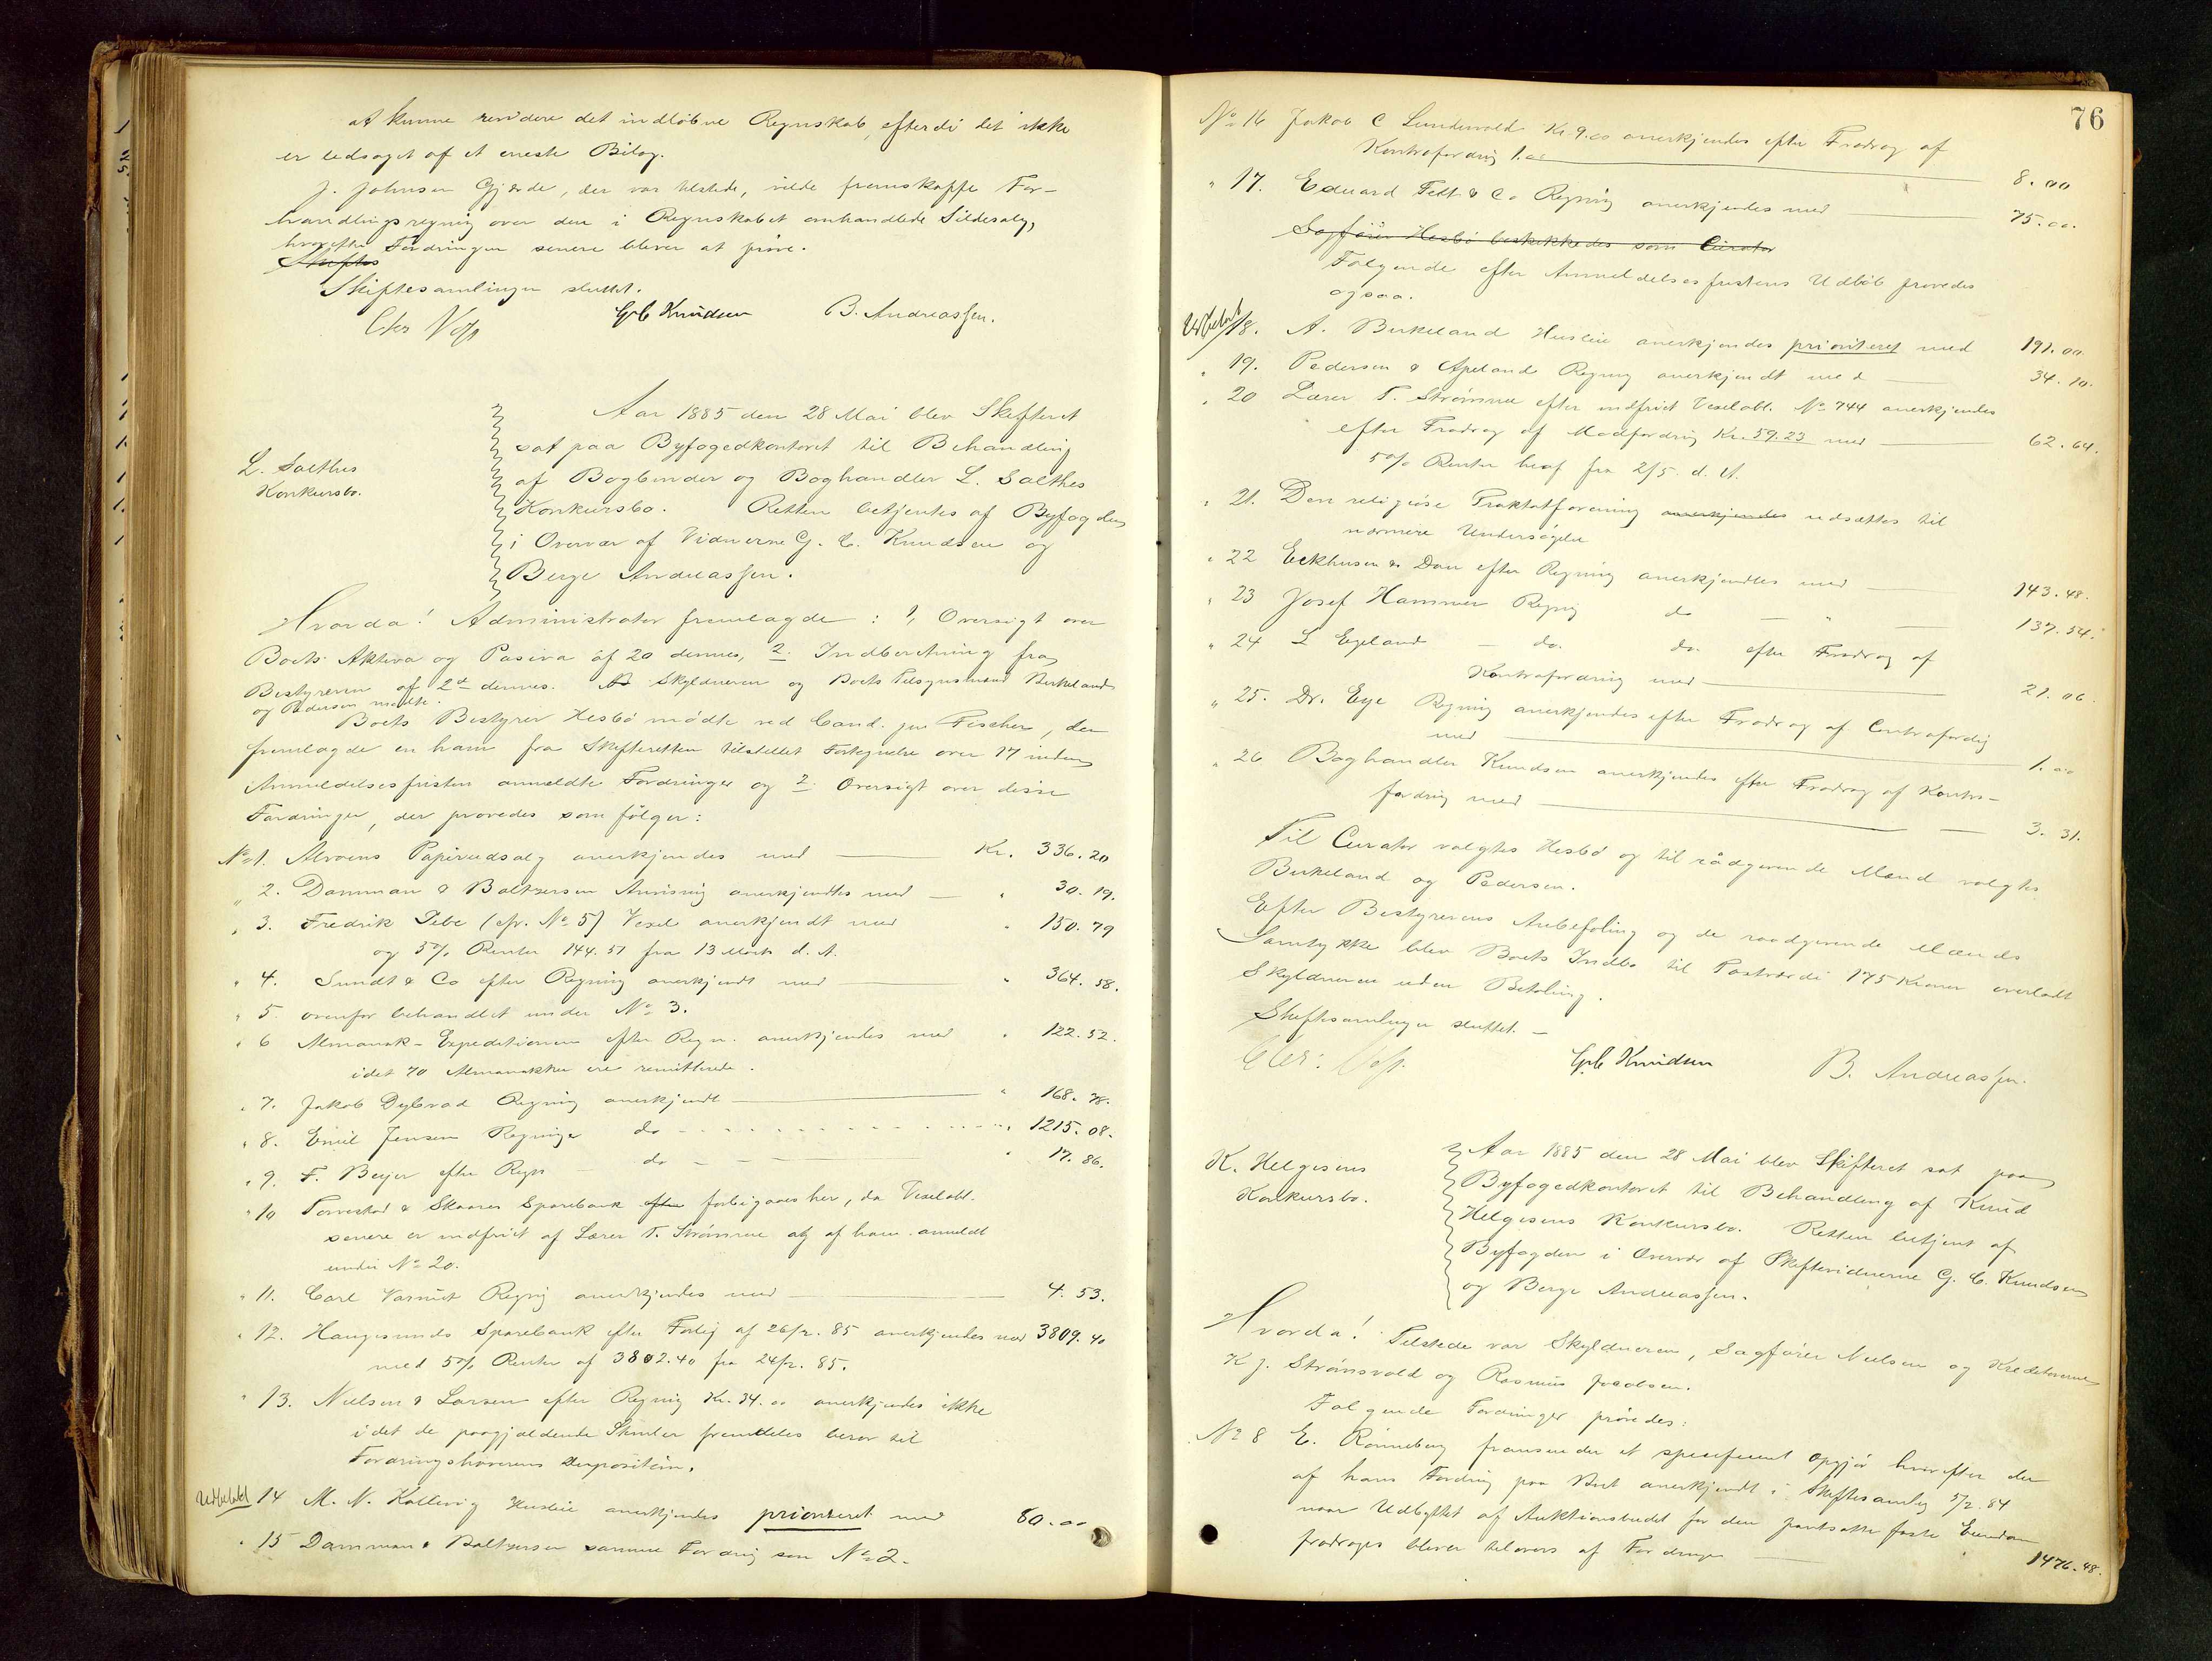 at kunne revidere det indløbne Regnskab, efterdi det ikke
er ledsaget af et eneste Bilag.
J. Johnsen Gjerde, der var tilstede, vilde fremskaffe For-
handlingsregning over den i Regnskabet omhandlede Sildesalg,
hvorefter Fordringen senere bliver at prøve.
Skiftes
Skiftesamlingen sluttet.
Chr Voss G C Knudsen B. Andreassen.
L. Salthes
Konkursbo.
Aar 1885 den 28 Mai blev Skifteret
sat paa Byfogedkontoret til Behandling
af Bogbinder og Boghandler L. Salthes
Konkursbo. Retten betjentes af Byfogden
i Overvær af Vidnerne G. C. Knudsen og
Berge Andreassen.
Hvorda! Administrator fremlagde: 1, Oversigt over
Boets Aktiva og Pasiva af 20 dennes, 2. Indberetning fra
Bestyreren af 2d dennes. Skyldneren og Boets Tilsynsmænd Birkeland
og Pedersen mødte.
Boets Bestyrer Hesbø mødte ved Cand. jur Fischer, der
fremlagde en ham fra Skifteretten tilstillet Fortegnelse over 17 inden
Anmeldelsesfristen anmeldte Fordringer og 2. Oversigt over disse
Fordringer, der prøvedes som følger:
No 1. Alvøens Papirudsalg anerkjendes med Kr. 336.20
" 2. Damman & Baltzersen Anvisnig anerkjendtes med " 30.19.
" 3. Fredrik Bebe (cfr. No 5) Vexel anerkjendt med " 150.79
og 5% Renter 144.51 fra 13 Marts d. A.
" 4. Sundt & Co efter Regning anerkjendt med " 364.58.
" 5. ovenfor behandlet under No 3.
" 6 Almanak-Expeditionen efter Regn. anerkjendes med " 122.52.
idet 70 Almanakker ere remitterede.
" 7. Jakob Dybvad Regning anerkjendt " 168.78.
" 8. Emil Jensen Regninger do " 1215.08.
" 9. F. Beyer efter Regn do " 17.86.
" 10 Torvestad & Skaares Sparebank efter forbigaaes her, da Vexelobl.
senere er indfriet af Lærer T. Strømme og af ham anmeldt
under No 20.
" 11. Carl Regnig anerkjendes med 4.53.
" 12. Haugesunds Sparebank efter Forlig af 26/2. 85 anerkjendes med 3809.40
med 5% Renter af 3802.40 fra 24/2. 85.
" 13. Nielsen & Larsen efter Regnig Kr. 34.00 anerkjendes ikke
idet de paagjældende Skrifter fremdeles beror til
Fordringshaverens Disposition.
Udbetalt 14 M. N. Kallevig Husleie anerkjendes prioriteret med 80.00
" 15 Damman & Baltzersen samme Fordrig som No 2.
76
No 16 Jakob C Lundevold Kr 9.00 anerkjendes efter Fradrag af
Kontrafordrig 1.00 8.00
" 17. Eduard Fett & Co Regnig anerkjendes med 75.00.
Sagfører Hesbø beskikkedes som Curator
Følgende efter Anmeldelsesfristens Udløb prøvedes
ogsaa.
Udbetalt 18. A. Birkeland Husleie anerkjendes prioriteret med 191.00
" 19. Pedersen & Apeland Regnig anerkjendt med 34.10.
" 20 Lærer T. Strømme efter indfriet Vexelobl. No 744 anerkjendes
efter Fradrag af Modfordrig Kr. 59.23 med 62.64.
5% Renter heraf fra 2/5 d. A.
" 21. Den religiøse Traktatforening anerkjendes udsættes til
nærmere Undersøgelse
" 22 Eckhusen & Dau efter Regning anerkjendtes med 143.48.
" 23 Josef Hammer Regnig do " 137.54.
" 24 L Egeland do. do. efter Fradrag af
Kontrafordrig med 21.06.
" 25. Dr. Eye Regnig anerkjendes efter Fradrag af Contrafordrig
med 1.00
" 26 Boghandler Knudsen anerkjendes efter Fradrag af Kontra-
fordrig med 3.31.
Til Curator valgtes Hesbø og til raadgivende Mænd valgtes
Birkeland og Pedersen.
Efter Bestyrerens Anbefaling og de raadgivende Mænds
Samtykke blev Boets Indbo til Taxtværdi 175 Kroner overladt
Skyldneren uden Betaling.
Skiftesamlingen sluttet. –
Chr: Voss. G C Knudsen B. Andreassen.
K. Helgesens
Konkursbo.
Aar 1885 den 28 Mai blev Skifteret sat paa
Byfogedkontoret til Behandling af Knud
Helgesens Konkursbo. Retten betjent af
Byfogden i Overvær af Skiftevidnerne G. C. Knudsen
og Berge Andreassen.
Hvorda! Tilstede var Skyldneren, Sagfører Nielsen og Kreditorerne
K J. Strømsvold og Rasmus
Følgende Fordringer prøvedes:
No 8 E. Rønneberg fremsender et specificeret Opgjør hvorefter der
af hans Fordrig paa Boet anerkjendt i Skiftesamlig 5/2. 84
naar Udbyttet af Auktionsbudet for den pantsatte faste Eiendom
fradrages bliver tilovers af Fordringen 1476.48.